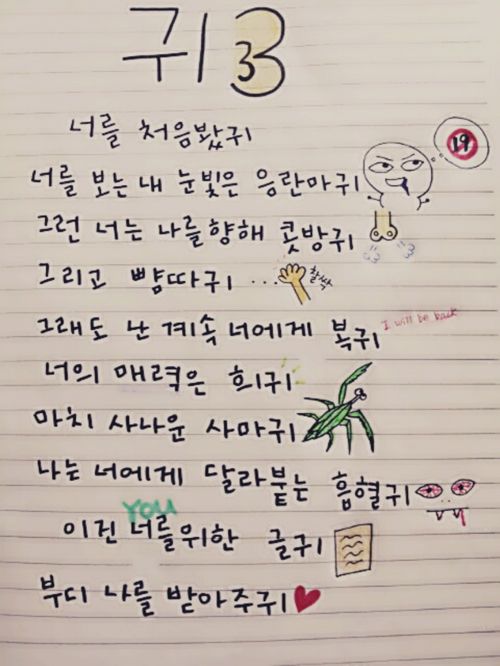 귀3
너를 처음봤귀
19
너를 보는 내 눈빛은 응란마귀
그런 너는 나를향해 콧방귀
그리고 뺨따귀 ... 찰싹
그래도 난 계속 너에게 복귀 I will be back
너의 매력은 희귀
마치 사나운 사마귀
나는 너에게 달라붙는 흡혈귀
YOU
이건 너를위한 글귀
부디 나를 받아주귀